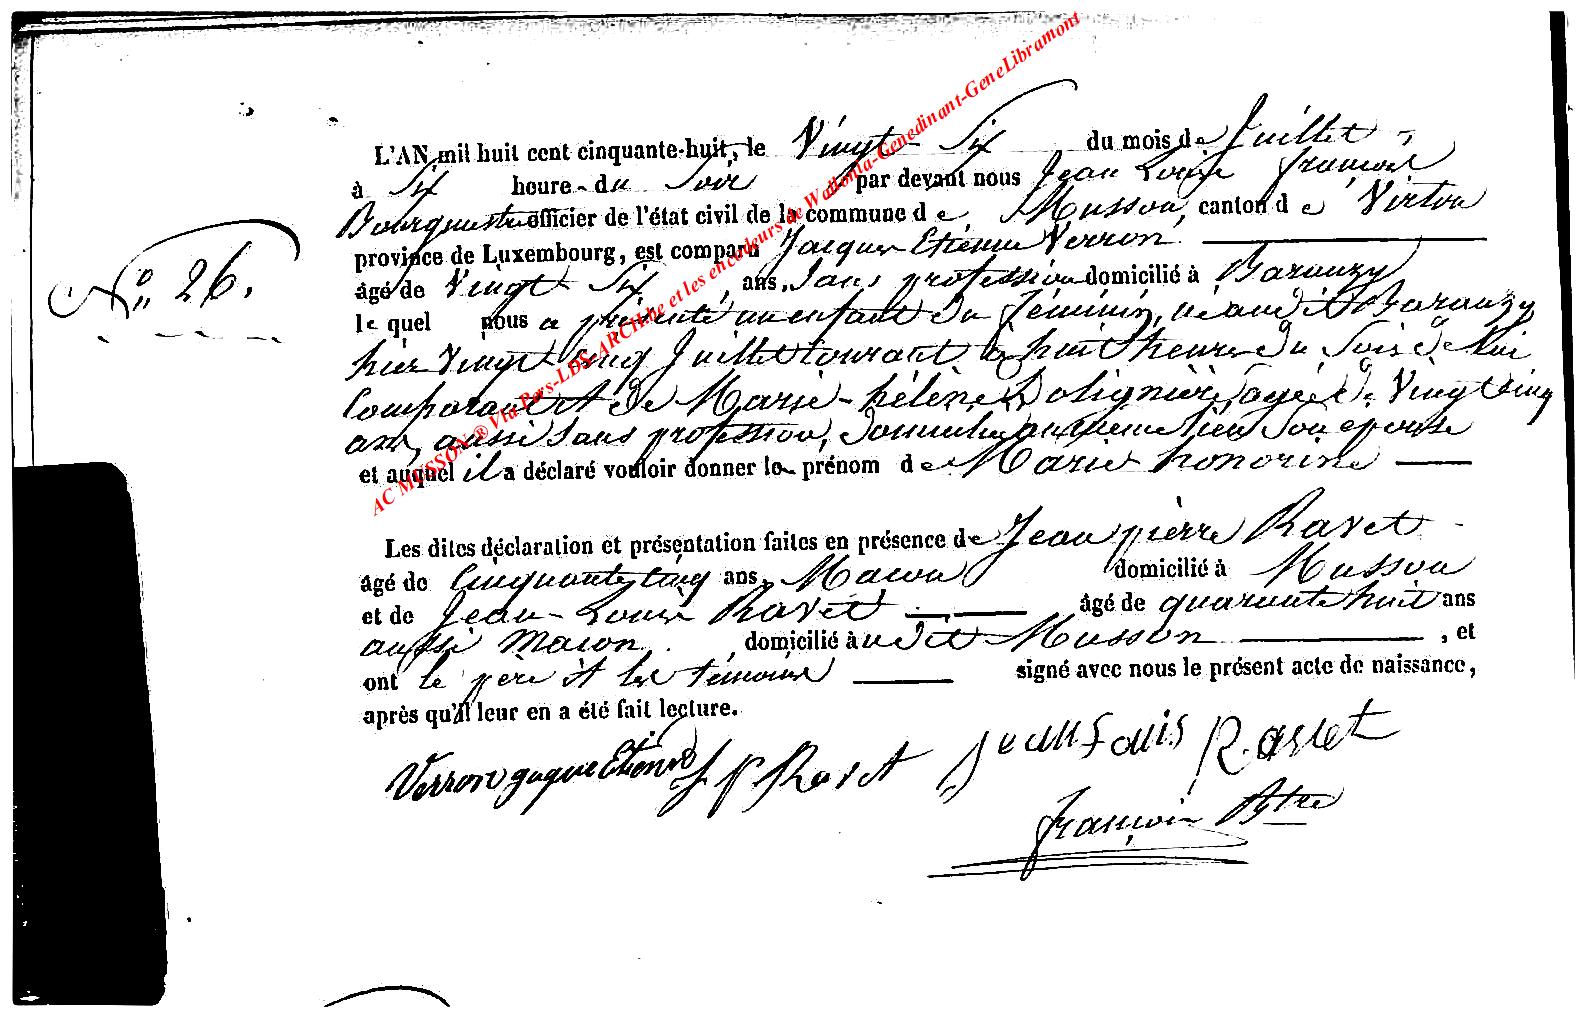 L'AN mil huit cent cinquante-huit, le Vingt Six du mois de Juillet
à Six heure du Soir par devant nous Jean Louis françois
Bourguestre officier de l'état civil de la commune de Musson, canton de Virton
province de Luxembourg, est comparu Jacques Etienne Verron
N° 26.
âgé de Vingt Six ans, Sans profession domicilié à Baranzy
lequel nous a présenté un enfant du féminin, né audit Baranzy
hier Vingt cinq Juillet courant à huit heures du Soir de lui
Comparant et de Marie-hélène agée de Vingt cinq
ans, aussi Sans profession, domiciliée au même lieu Son epouse
et auquel il a déclaré vouloir donner le prénom de Marie honorine
Les dites déclaration et présentation faites en présence de Jean pierre Ravet
âgé de Cinquante cinq ans, Macon domicilié à Musson
et de Jean-Louis Ravet âgé de quarante huit ans
aussi Macon domicilié audit Musson, et
ont le père et les témoins signé avec nous le présent acte de naissance,
après qu'il leur en a été fait lecture.
Verron Etienne J P Ravet Jean Louis Ravet
françois Bgtre
AC MUSSON ® Via Pars-LDS-ARCH.be et les encodeurs de Wallonia-Genedinant-GeneLibramont